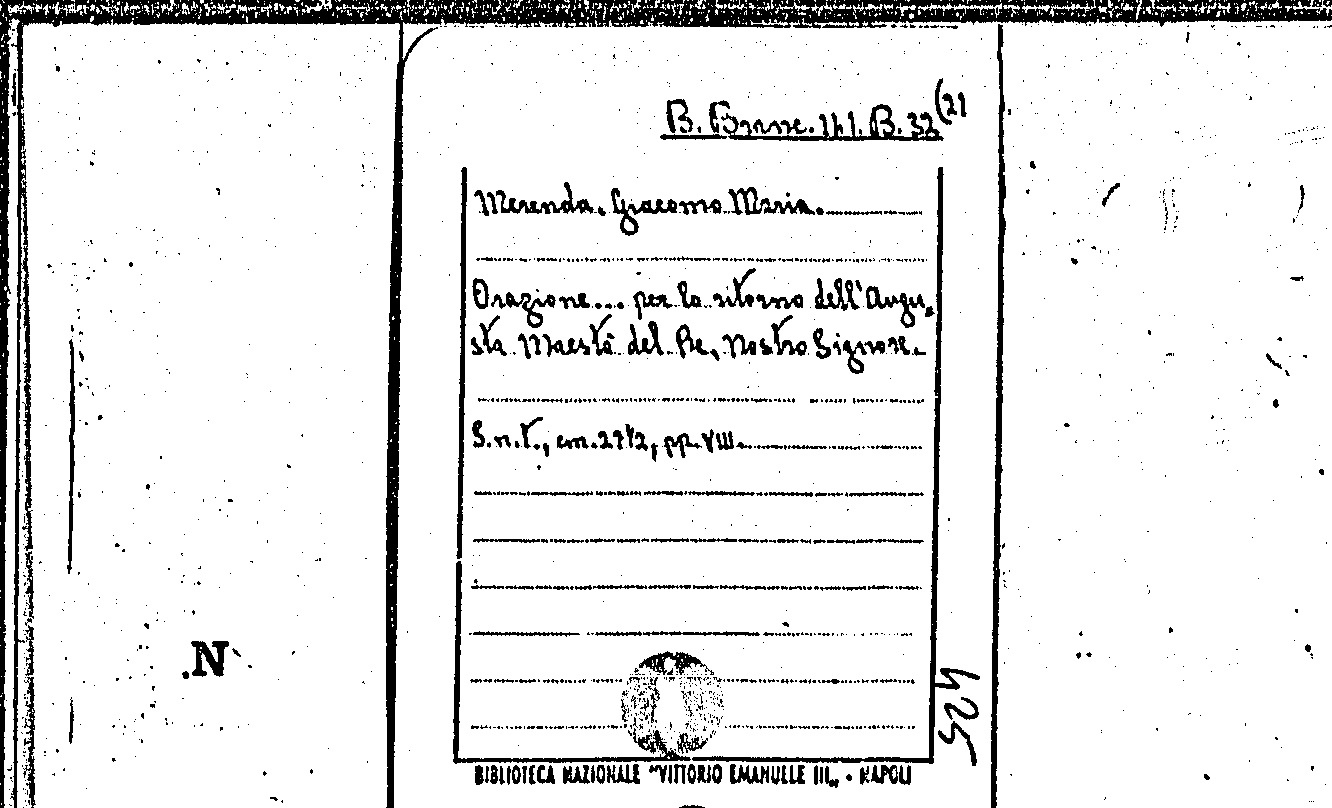 B. Branc. 141. B. 32 (21
Merenda. Giacomo Maria.
Orazione... per lo ritorno dell'Augu„
sta Maestà del Re, Nostro Signore.
S.n.t., cm. 27½, pp. VIII.
.N
524
BIBLIOTECA NAZIONALE "VITTORIO EMANUELE III„ - NAPOLI